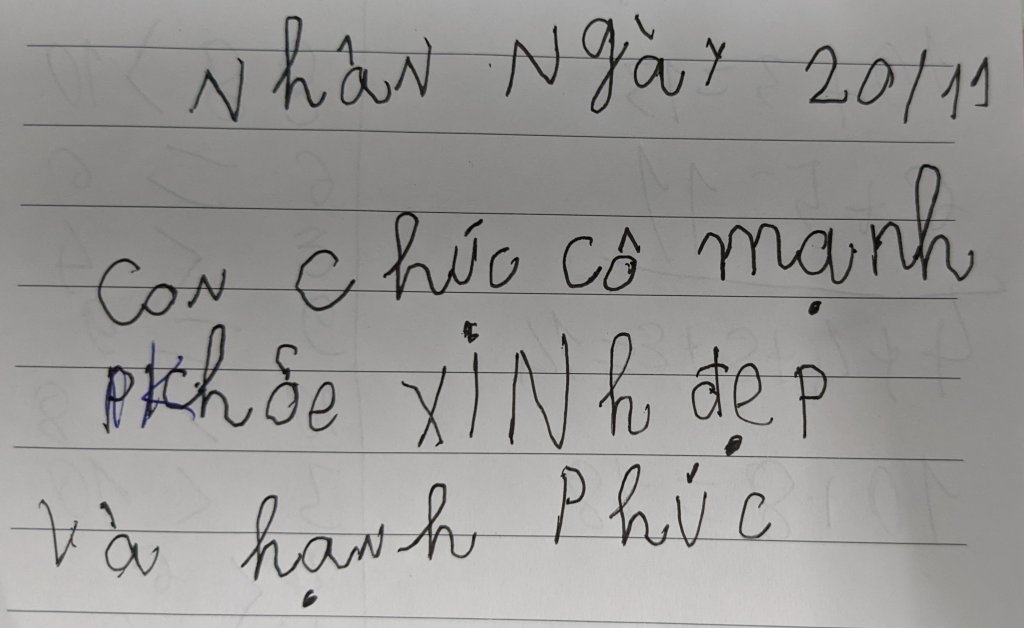 Nhân Ngày 20/11
Con chúc cô mạnh
khỏe xinh đẹp
và hạnh phúc